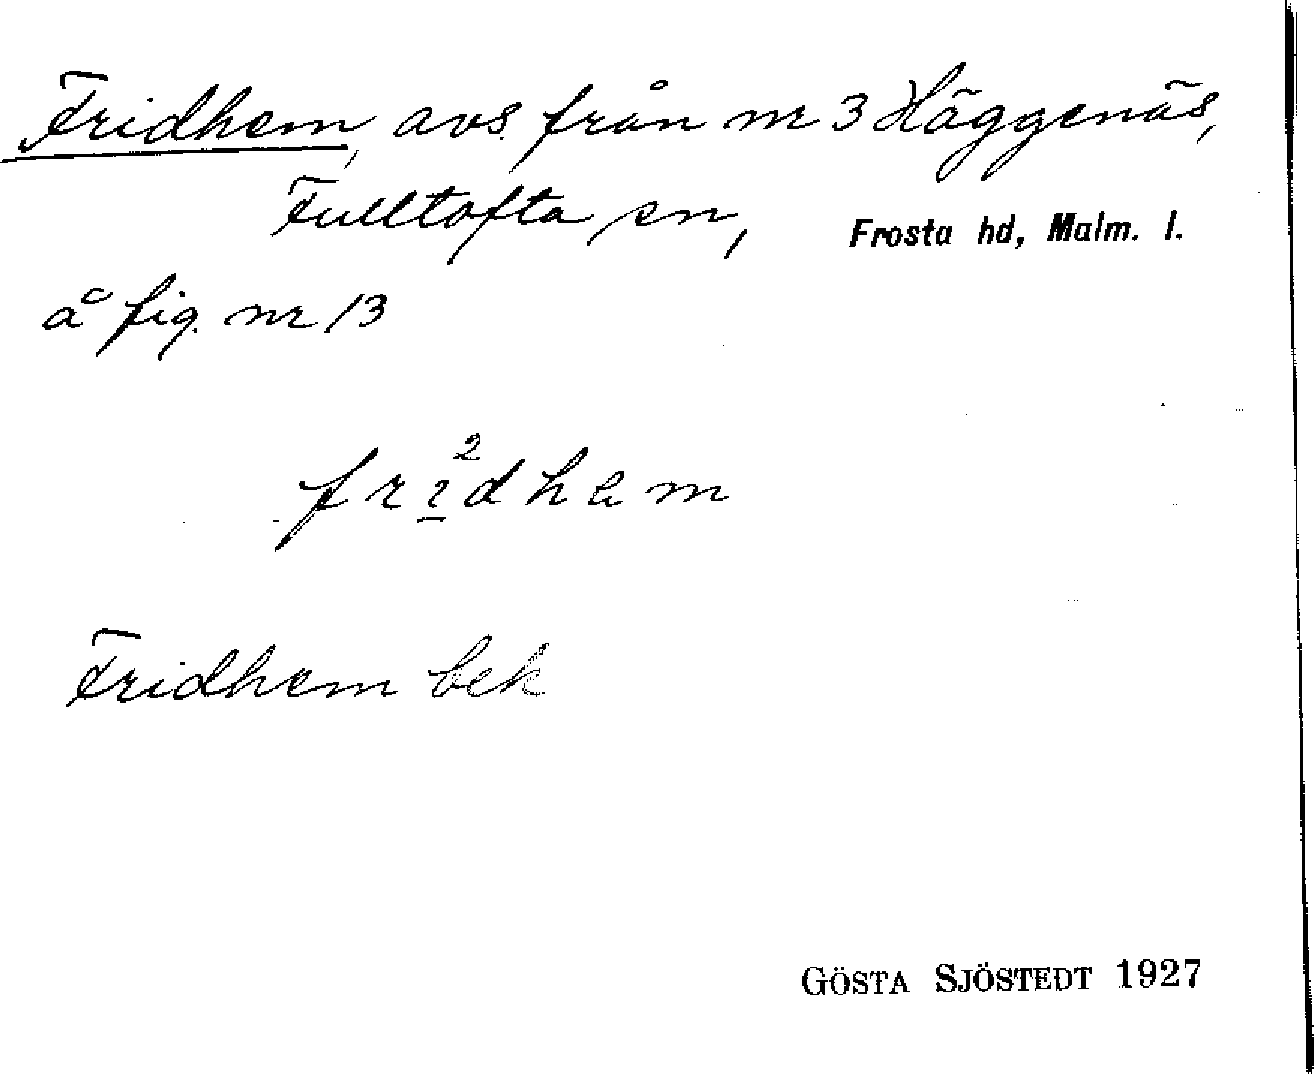 Fridhem, avs. från nr 3 Häggenäs,
Fulltofta sn, Frosta hd, Malm. l.
å fig. nr 13
fri²dhem
Fridhem bek
GÖSTA SJÖSTEDT 1927